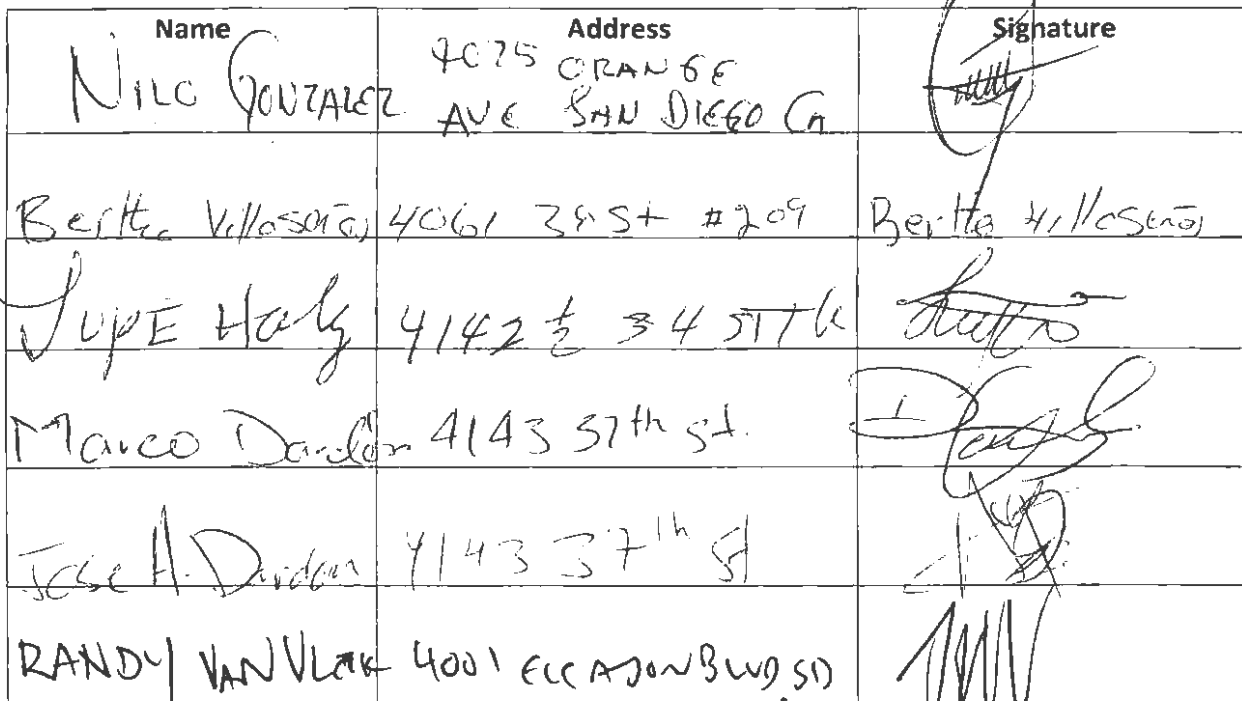 Name Address Signature
NILO GONZALEZ 4075 ORANGE
AVE SAN DIEGO CA
Bertha Villaseñor 4061 St #209 Bertha Villaseñor
LUPE 4142 ½ 34 ST
Marco Dardón 4143 37th st.
Jose A. Dardon 4143 37th st
RANDY VAN VLECK 4001 EL CAJON BLVD SD